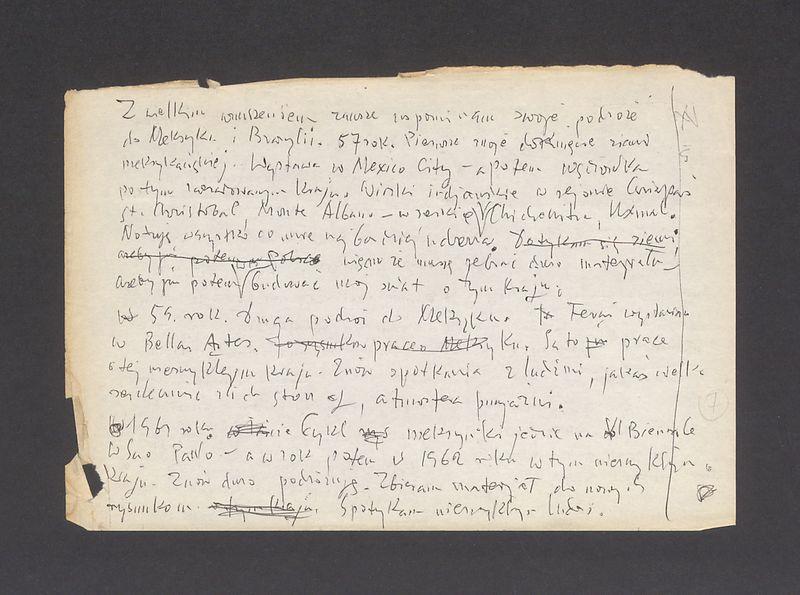 Z wielkim wzruszeniem zawsze wspominam swoje podróże
do Meksyku i Brazylii. 57 rok. Pierwsze moje dotknięcie ziemi
meksykańskiej. Wystawa w Mexico City – a potem wędrówka
po tym kraju. Wioski indjańskie w rejonie
St. Christobal, Monte Albano – w Chichenitza, Uxmal.
Notuję wszystko co mnie najbardziej uderza. Dotykam się ziemi
ażeby już potem w Polsce więcim że muszę zebrać dużo materjału
ażeby już potem budować mój świat o tym kraju.
w 59. rok. Druga podróż do Meksyku. Teraz wystawa
w Bellas Artes. prace Meksyku. Są to prace
o tej niezwykłym kraju. Znów spotkania z ludźmi, jakaś wielka
serdeczność z ich strony, atmosfera przyjaźni.
W 1961 roku Cykl meksykański jedzie na VI Biennale
w Sao Paolo – a w rok potem w 1962 roku w tym niezwykłym
kraju. Znów dużo podróżuję. Zbieram materjał do nowych
rysunków. o tym kraju. Spotykam niezwykłych ludzi.
7